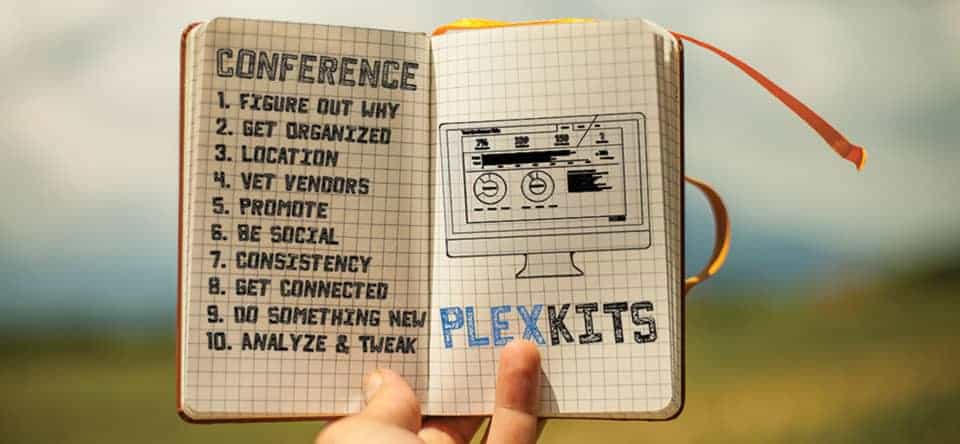 CONFERENCE
1. FIGURE OUT WHY
2. GET ORGANIZED
3. LOCATION
4. VET VENDORS
5. PROMOTE
6. BE SOCIAL
7. CONSISTENCY
8. GET CONNECTED
9. DO SOMETHING NEW
10. ANALYZE & TWEAK
PLEXKITS